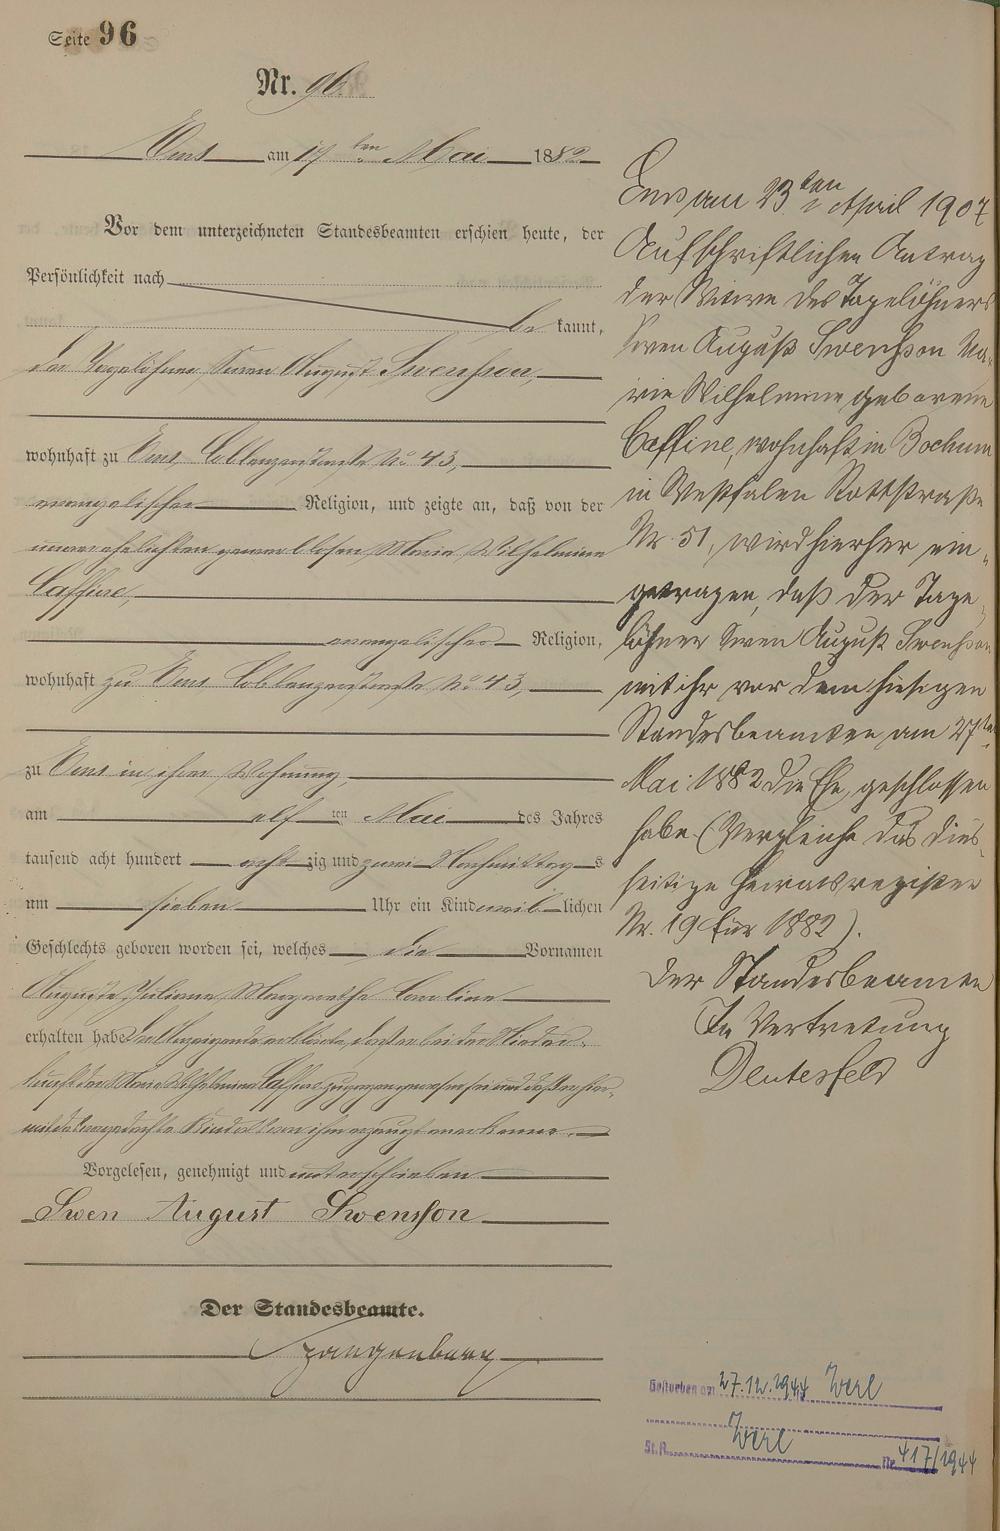 Seite 96
Nr. 96.
Ems am 17 ten Mai 1882
Vor dem unterzeichneten Standesbeamten erschien heute, der
Persönlichkeit nach
be kannt,
der Tagelöhner Swen August Swensson,
wohnhaft zu Ems, Coblenzerstraße No 43,
evangelischer Religion, und zeigte an, daß von der
unverehelichten gewerblosen Marie Wilhelmine
Caffine,
evangelischer Religion,
wohnhaft zu Ems, Coblenzerstraße No 43,
zu Ems in ihrer Wohnung,
am elf ten Mai des Jahres
tausend acht hundert acht zig und zwei Nachmittag s
um sieben Uhr ein Kind weib lichen
Geschlechts geboren worden sei, welches die Vornamen
Auguste Juliane Margarethe Caroline
erhalten habe. Der Anzeigende erklärte, daß er bei der Nieder-
kunft der Marie Wilhelmine Caffine zugegen gewesen sei und daß er hier-
mit das vorgedachte Kind als von ihm erzeugt anerkenne.
Vorgelesen, genehmigt und unterschrieben
Swen August Swensson
Der Standesbeamte.
Spangenberg
Ems am 23 ten April 1907
Auf schriftlichen Antrag
der Witwe des Tagelöhners
Swen August Swensson Ma-
rie Wilhelmine geborene
Caffine, wohnhaft in Bochum
in Westfalen Rottstraße
Nr. 51, wird hierher ein-
getragen, daß der Tage-
löhner Swen August Swensson
mit ihr vor dem hiesigen
Standesbeamten am 27ten
Mai 1882 die Ehe geschlossen
habe. (Vergleiche das dies-
seitige Heiratsregister
Nr. 19 für 1882).
Der Standesbeamte
In Vertretung
Deutesfeld
Gestorben am 27.12.1944 Werl
St.A. Werl Nr. 417/1944